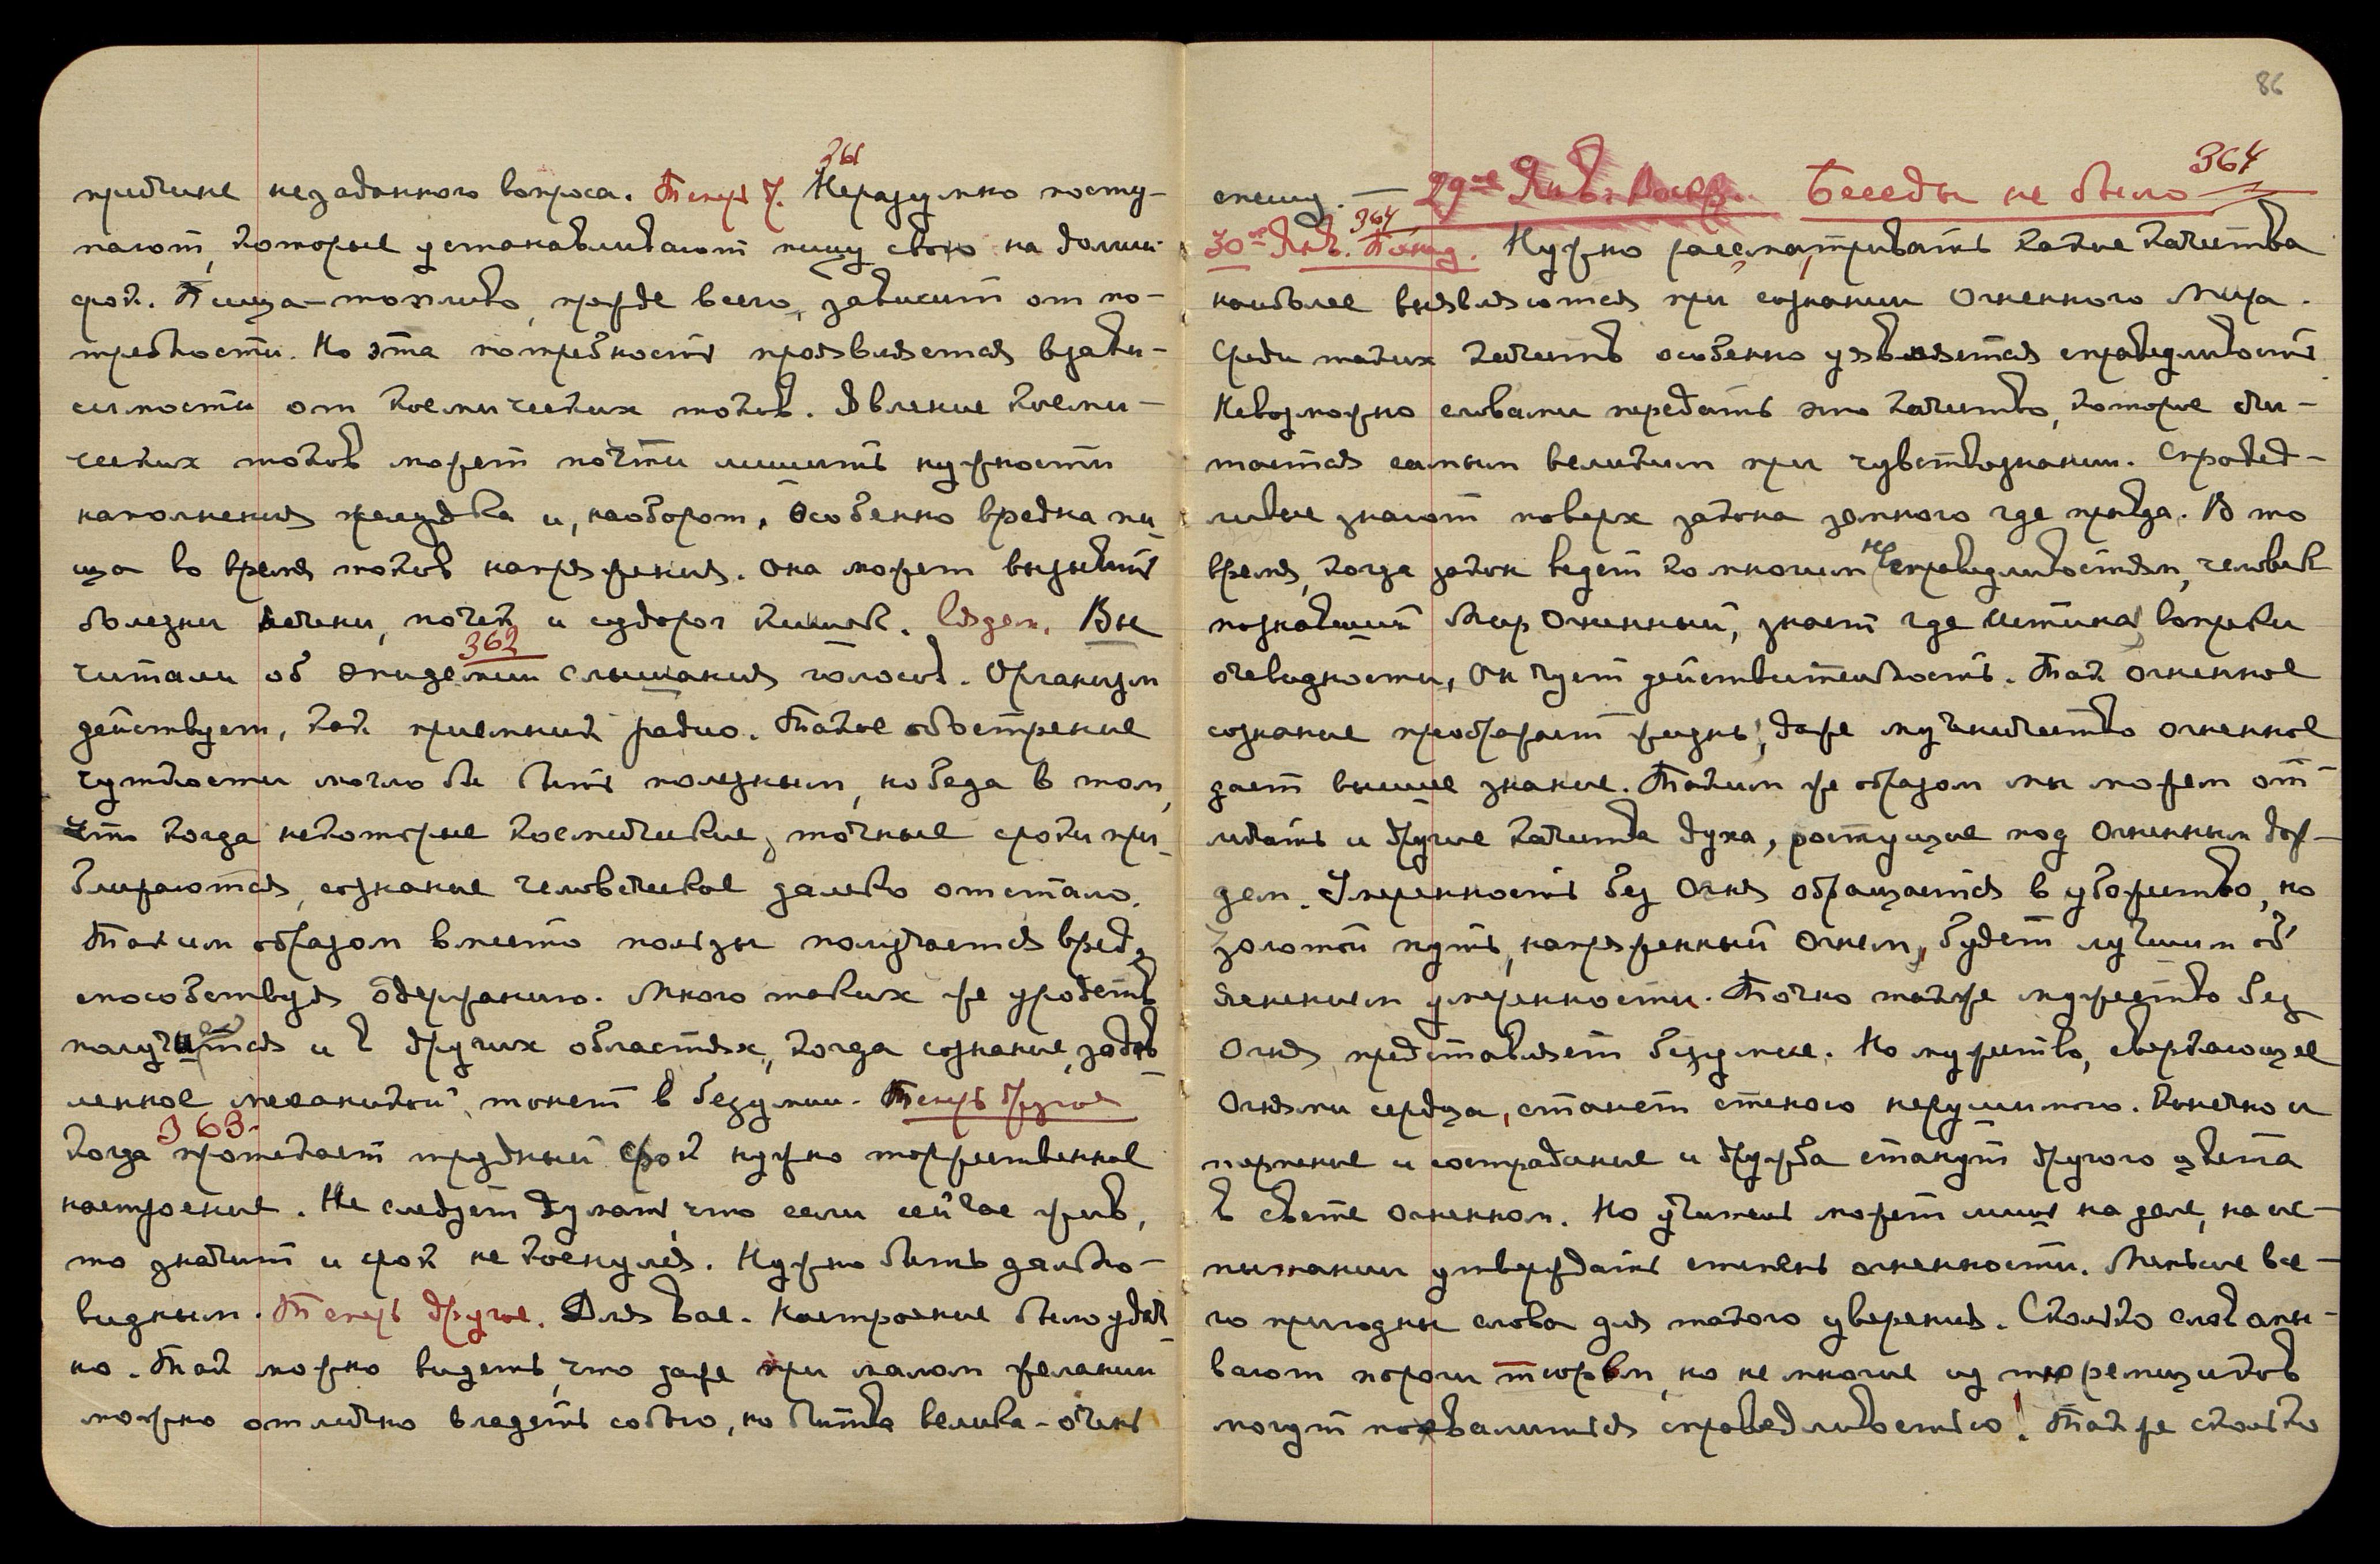 361
причине незаданного вопроса. Теперь д. Неразумно посту-
пают, которые устанавливают пищу свою на долгий
срок. Пища – топливо, прежде всего, зависит от по-
требности. Но эта потребность проявляется в зави-
симости от космических токов. Явление косми-
ческих токов может почти лишить нужности
наполнения желудка и, наоборот. Особенно вредна пи-
ща во время токов напряжения. Она может вызывать
болезни печени, почек и судорог кишок. Владык. Вы
362
читали об эпидемии слышания голосов. Организм
действует, как приемник радио. Такое обострение
чуткости могло бы быть полезным, но беда в том,
что когда некоторые космические, точные сроки при-
ближаются, сознание человеческое далеко отстало.
Таким образом вместо пользы получается вред,
способствуя одержанию. Много таких же уродств
получается и в других областях, когда сознание, задав-
ленное механикой, тонет в безумии. Теперь другое
363.
Когда протекает трудный срок нужно торжественное
настроение. Не следует думать, что если сейчас жив,
то значит и срок не коснулся. Нужно быть дально-
видным. Теперь другое. Для вас. Настроение было удач-
но. Так можно видеть, что даже при малом желании
можно отлично владеть собою, но битва велика – очень
86
спешу. — 29ое Янв. Воскр. Беседы не было 364
30ое Янв. Понед. 364 Нужно рассматривать какие качества
наиболее выявляются при сознании Огненного Мира.
Среди таких качеств особенно уявляется справедливость
Невозможно словами передать это качество, которое счи-
тается самым великим при чувствознании. Справед-
ливые знают поверх закона земного где правда. В то
время, когда закон ведет ко многим несправедливостям, человек
познавший Мир Огненный, знает где истина, вопреки
очевидности, Он чует действительность. Так огненное
сознание преображает жизнь, даже мученичество огненное
дает высшее знание. Таким же образом мы можем от-
личать и другие качества духа, растущие под Огненным дож-
дем. Умеренность без Огня обращается в убожество, но
золотой путь, напряженный Огнем, будет лучшим об'
яснением умеренности. Точно также мужество без
Огня представляет безумие. Но мужество, сверкающее
Огнями сердца, станет стеною нерушимою. Конечно и
терпение и сострадание и дружба станут другого цвета
в свете огненном. Но учитель может лишь на деле, на ис-
пытании утверждать степень огненности. Меньше все-
го пригодны слова для такого уверения. Сколько слов омы-
вают пороги тюрем, но не многие из тюремщиков
могут похвалиться справедливостью! Так же сколько